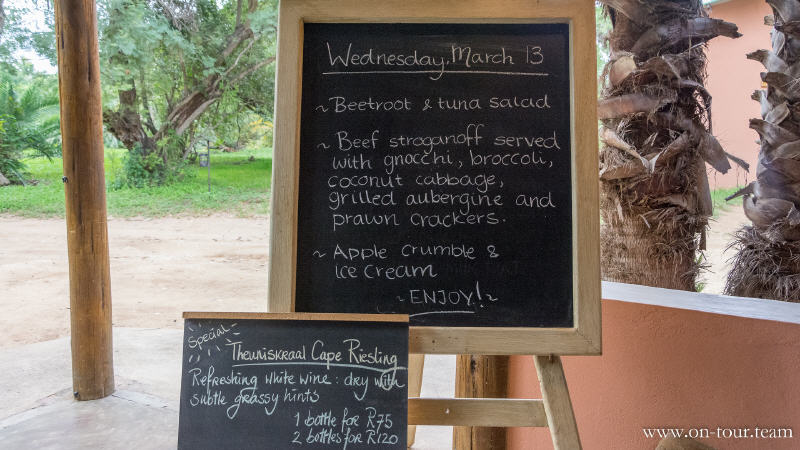 Wednesday, March 13
~ Beetroot & tuna salad
~ Beef stroganoff served
with gnocchi, broccoli,
coconut cabbage,
grilled aubergine and
prawn crackers.
~ Apple crumble &
Ice cream
~ ENJOY! ~
Special
Theuniskraal Cape Riesling
Refreshing white wine: dry with
subtle grassy hints
1 bottle for R75
2 bottles for R120
www.on-tour.team